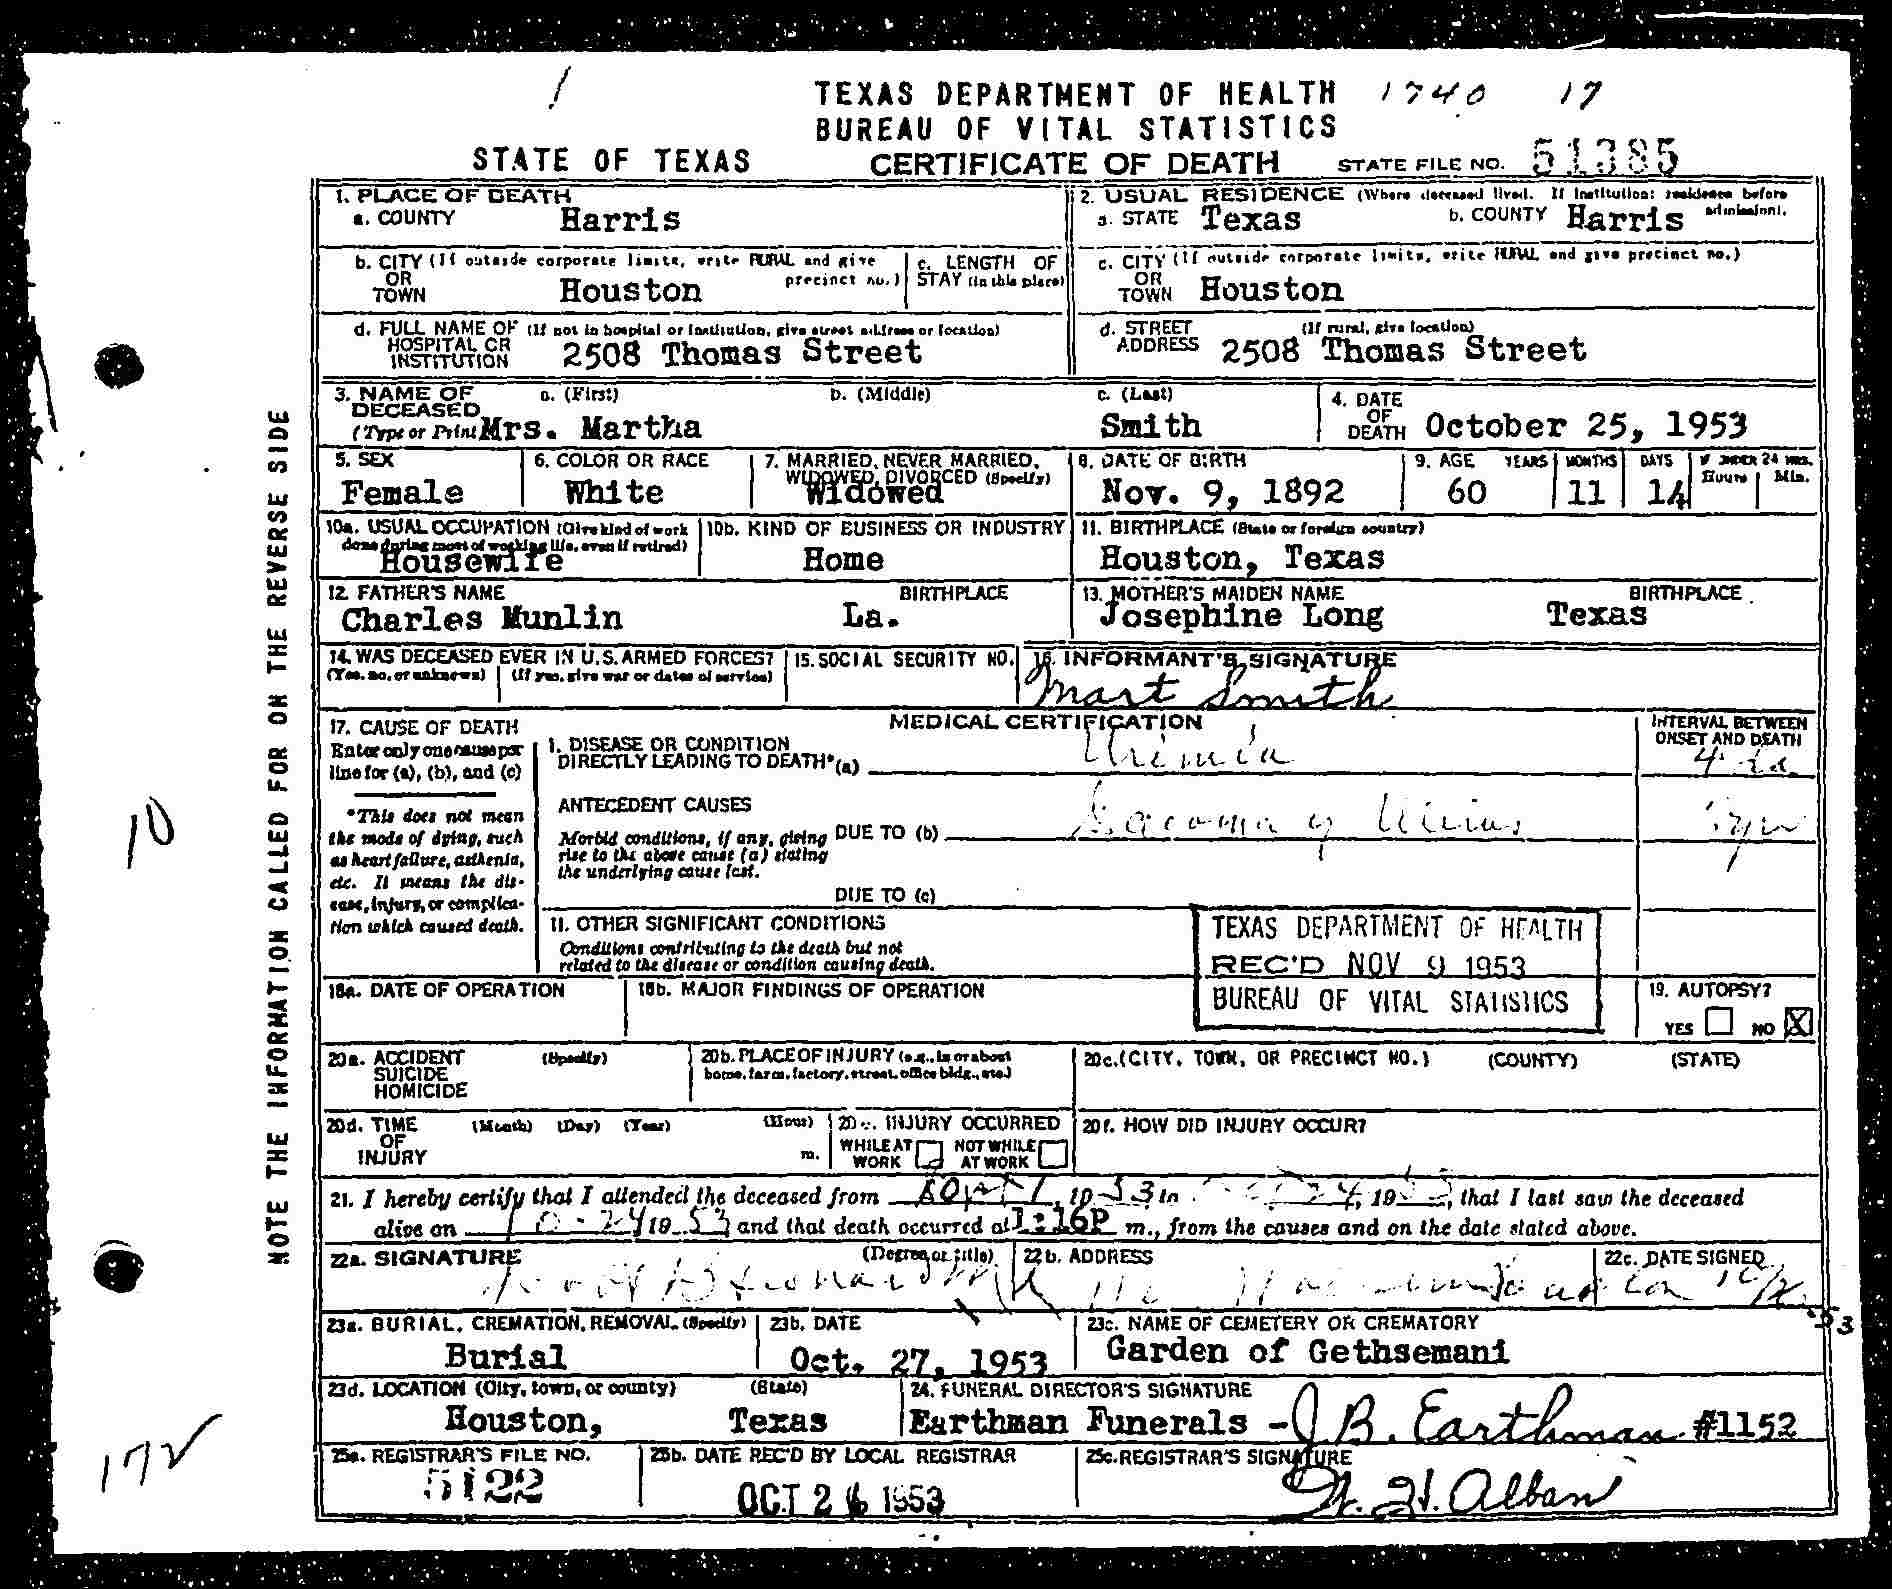 1740 17
TEXAS DEPARTMENT OF HEALTH
BUREAU OF VITAL STATISTICS
STATE OF TEXAS CERTIFICATE OF DEATH STATE FILE NO. 51385
NOTE THE INFORMATION CALLED FOR ON THE REVERSE SIDE
1. PLACE OF DEATH
a. COUNTY Harris
2. USUAL RESIDENCE (Where deceased lived. If institution: residence before admission).
a. STATE Texas b. COUNTY Harris
b. CITY (If outside corporate limits, write RURAL and give precinct no.)
OR
TOWN Houston
c. LENGTH OF
STAY (in this place)
c. CITY (If outside corporate limits, write RURAL and give precinct no.)
OR
TOWN Houston
d. FULL NAME OF (If not in hospital or institution, give street address or location)
HOSPITAL OR
INSTITUTION 2508 Thomas Street
d. STREET (If rural, give location)
ADDRESS 2508 Thomas Street
3. NAME OF a. (First) b. (Middle) c. (Last)
DECEASED
(Type or Print Mrs. Martha Smith
4. DATE
OF
DEATH October 25, 1953
5. SEX
Female
6. COLOR OR RACE
White
7. MARRIED, NEVER MARRIED,
WIDOWED, DIVORCED (Specify)
Widowed
8. DATE OF BIRTH
Nov. 9, 1892
9. AGE YEARS MONTHS DAYS IF UNDER 24 HRS.
Hours Min.
60 11 14
10a. USUAL OCCUPATION (Give kind of work
done during most of working life, even if retired)
Housewife
10b. KIND OF BUSINESS OR INDUSTRY
Home
11. BIRTHPLACE (State or foreign country)
Houston, Texas
12. FATHER'S NAME BIRTHPLACE
Charles Munlin La.
13. MOTHER'S MAIDEN NAME BIRTHPLACE
Josephine Long Texas
14. WAS DECEASED EVER IN U.S. ARMED FORCES?
(Yes, no, or unknown) (If yes, give war or dates of service)
15. SOCIAL SECURITY NO.
16. INFORMANT'S SIGNATURE
Mart Smith
17. CAUSE OF DEATH
Enter only one cause per
line for (a), (b), and (c)
*This does not mean
the mode of dying, such
as heart failure, asthenia,
etc. It means the dis-
ease, injury, or complica-
tion which caused death.
MEDICAL CERTIFICATION
INTERVAL BETWEEN
ONSET AND DEATH
I. DISEASE OR CONDITION
DIRECTLY LEADING TO DEATH*(a) Urimia 4
ANTECEDENT CAUSES
Morbid conditions, if any, giving
rise to the above cause (a) stating
the underlying cause last.
DUE TO (b)
DUE TO (c)
II. OTHER SIGNIFICANT CONDITIONS
Conditions contributing to the death but not
related to the disease or condition causing death.
TEXAS DEPARTMENT OF HEALTH
REC'D NOV 9 1953
BUREAU OF VITAL STATISTICS
18a. DATE OF OPERATION
18b. MAJOR FINDINGS OF OPERATION
19. AUTOPSY?
YES NO X
20a. ACCIDENT (Specify)
SUICIDE
HOMICIDE
20b. PLACE OF INJURY (e.g., in or about
home, farm, factory, street, office bldg., etc.)
20c. (CITY, TOWN, OR PRECINCT NO.) (COUNTY) (STATE)
20d. TIME (Month) (Day) (Year) (Hour)
OF
INJURY m.
20e. INJURY OCCURRED
WHILE AT NOT WHILE
WORK AT WORK
20f. HOW DID INJURY OCCUR?
21. I hereby certify that I attended the deceased from 1953 to 24, 1953, that I last saw the deceased
alive on 10-24 1953 and that death occurred at 1:16P m., from the causes and on the date stated above.
22a. SIGNATURE (Degree or title)
22b. ADDRESS
22c. DATE SIGNED
-53
23a. BURIAL, CREMATION, REMOVAL (Specify)
Burial
23b. DATE
Oct. 27, 1953
23c. NAME OF CEMETERY OR CREMATORY
Garden of Gethsemani
23d. LOCATION (City, town, or county) (State)
Houston, Texas
24. FUNERAL DIRECTOR'S SIGNATURE
Earthman Funerals - J.B. Earthman #1152
25a. REGISTRAR'S FILE NO.
5122
25b. DATE REC'D BY LOCAL REGISTRAR
OCT 26 1953
25c. REGISTRAR'S SIGNATURE
W. H. Alban
10
172